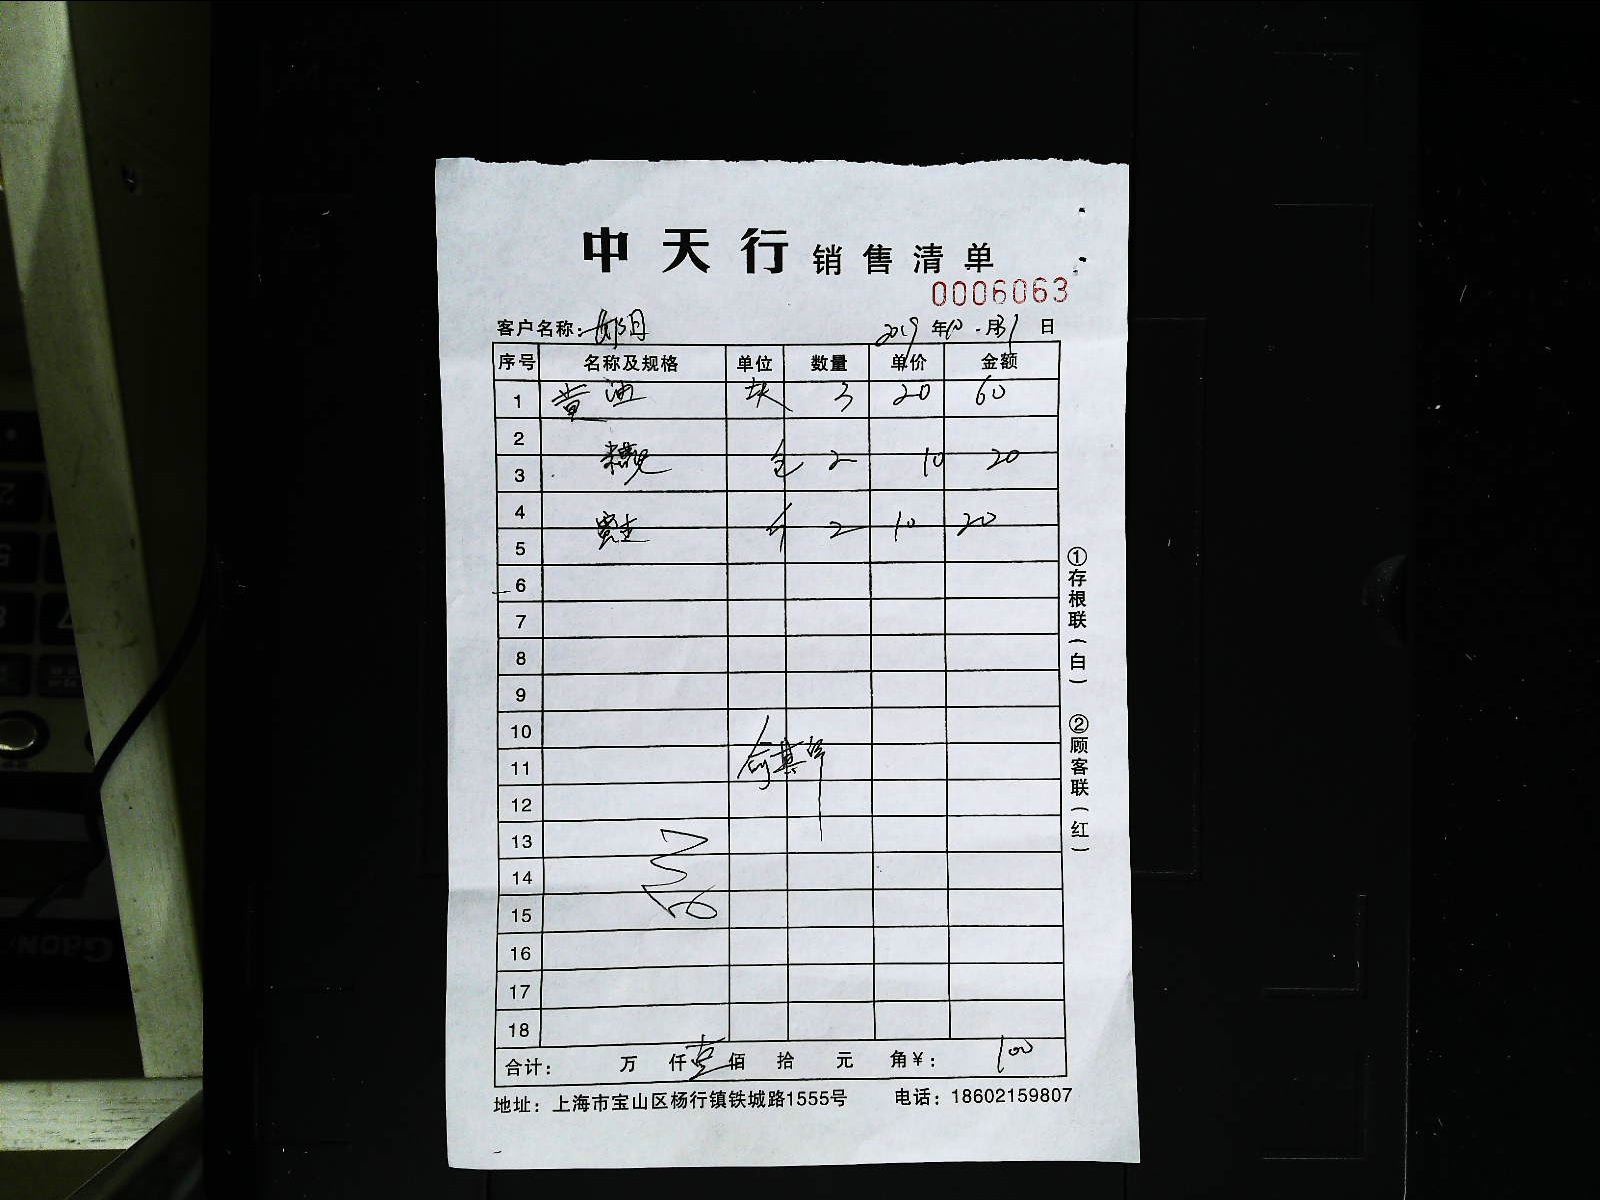 中天行 销售清单
0006063
客户名称: 2019年10月31日
序号 名称及规格 单位 数量 单价 金额
1 黄油 块 3 20 60
2
3 包 2 10 20
4 2 10 20
5
6
7
8
9
10
11
12
13
14
15
16
17
18
合计: 万 仟 壹佰 拾 元 角¥: 100
地址: 上海市宝山区杨行镇铁城路1555号 电话: 18602159807
①存根联(白)
②顾客联(红)